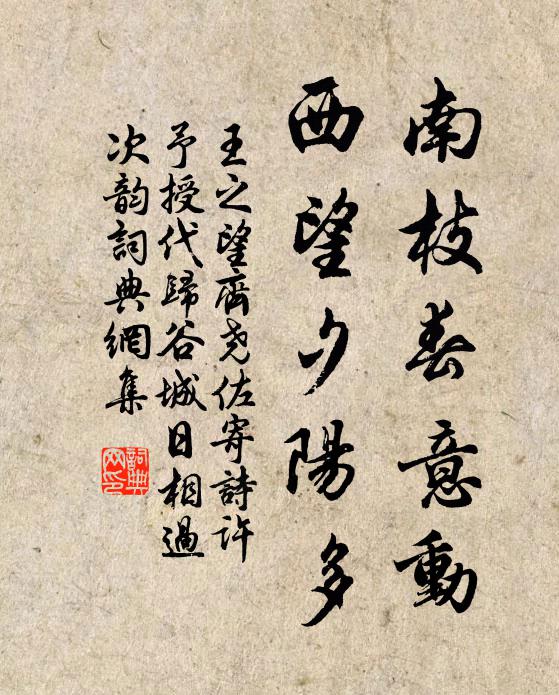 南枝春意動
西望夕陽多
王之望齊堯佐寄詩許
予授代歸谷城日相過
次韵詞典網集
詞典網印